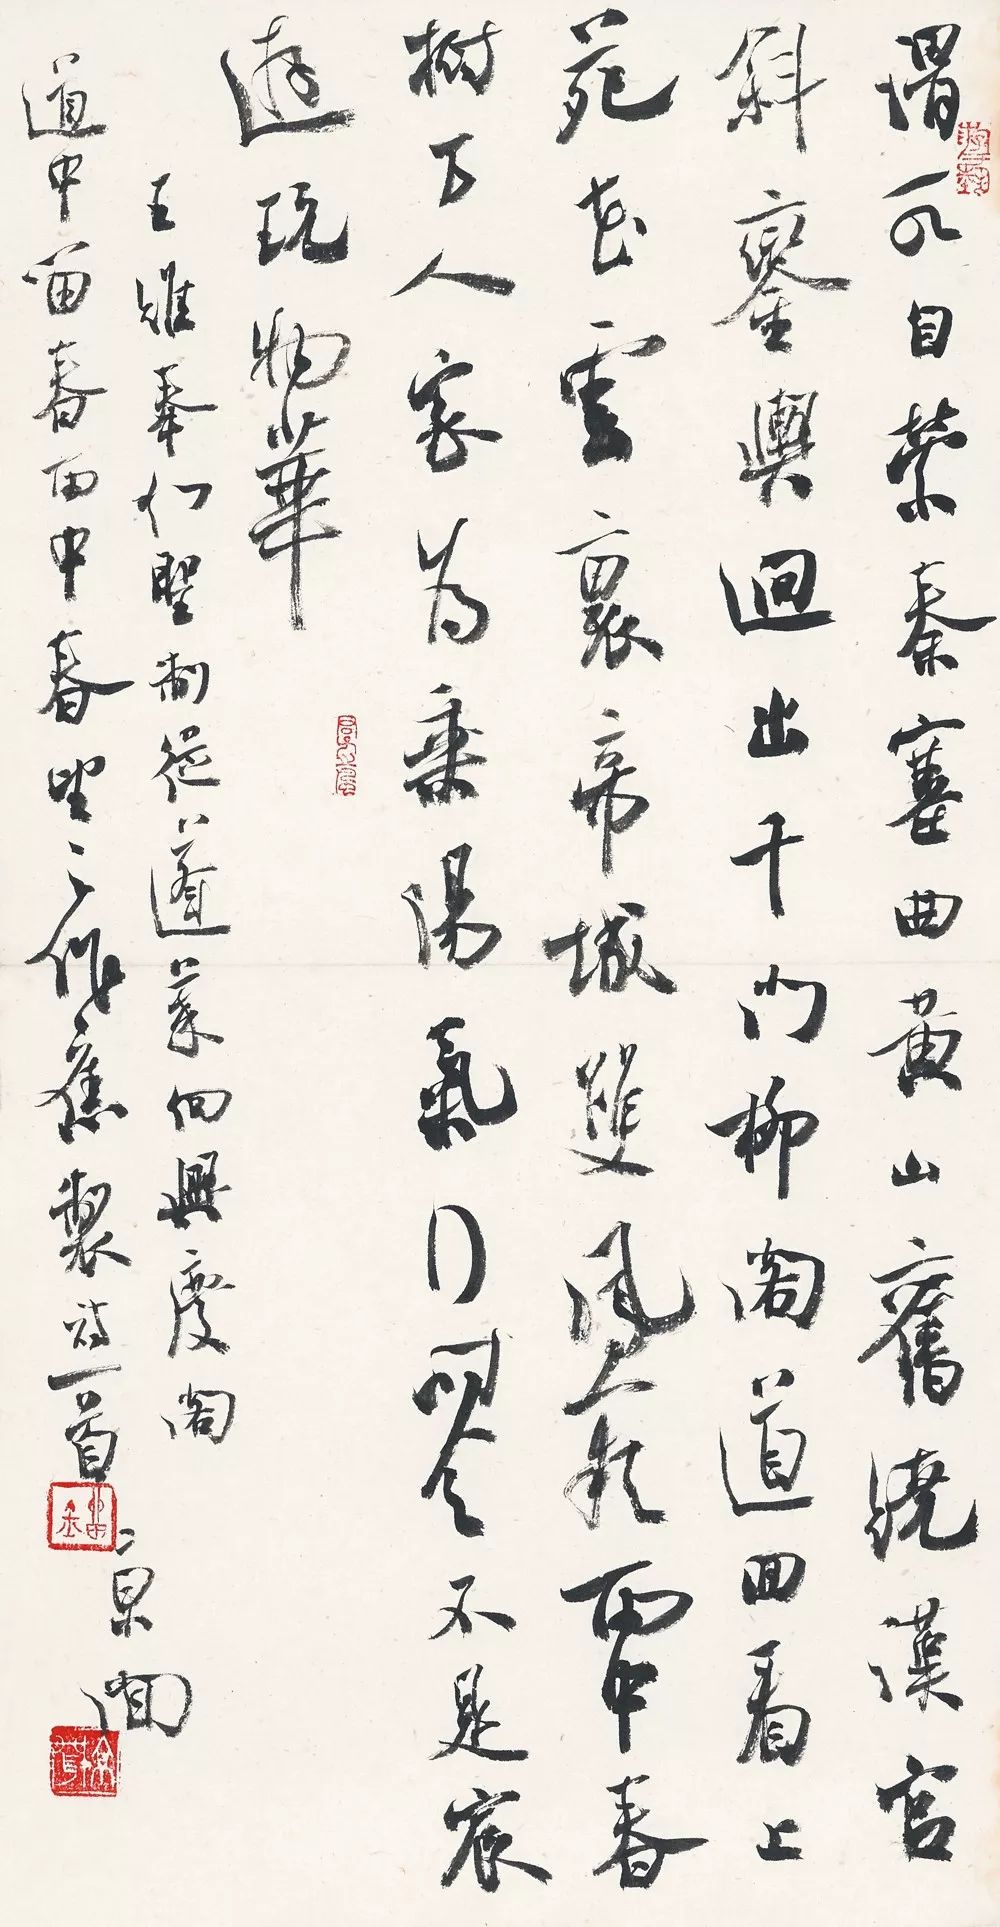 渭水自縈秦塞曲黄山舊繞漢宮
斜鑾輿迥出千門柳閣道回看上
苑花雲裏帝城雙鳳闕雨中春
樹万人家為乘陽氣行時令不是宸
遊玩物華
王維奉和聖制從蓬萊向興慶閣
道中留春雨中春望之作應製詩一首
景